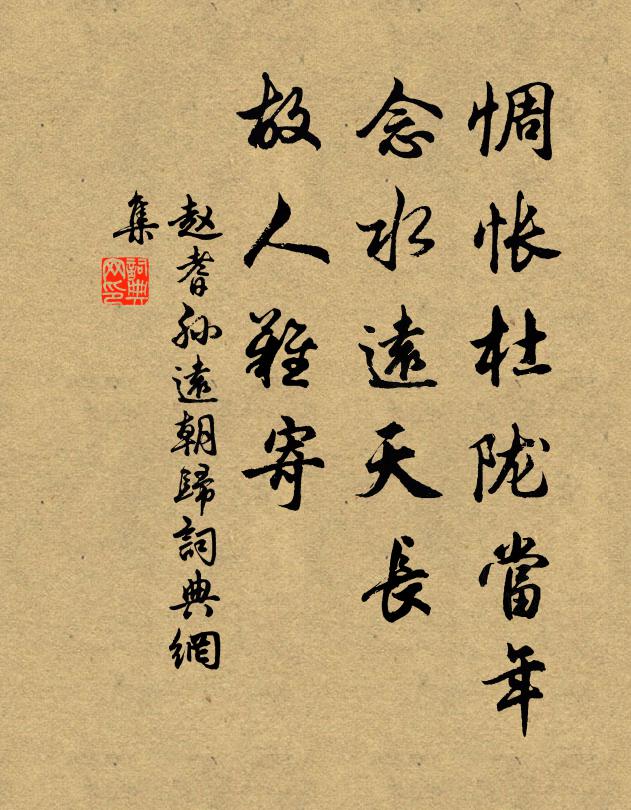 惆怅杜陇當年
念水遠天長
故人難寄
赵耆孙遠朝歸詞典網
集
詞典
网印